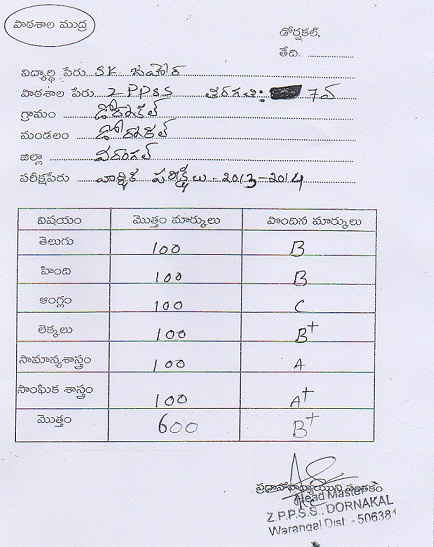 పాఠశాల ముద్ర
డోర్నకల్,
తేది.
విద్యార్థి పేరు SK జహీర
పాఠశాల పేరు ZPPSS తరగతి: 7వ
గ్రామం డోర్నకల్
మండలం డోర్నకల్
జిల్లా వరంగల్
పరీక్షపేరు వార్షిక పరీక్షలు - 2013-2014
విషయం మొత్తం మార్కులు పొందిన మార్కులు
తెలుగు 100 B
హింది 100 B
ఆంగ్లం 100 C
లెక్కలు 100 B+
సామాన్యశాస్త్రం 100 A
సాంఘిక శాస్త్రం 100 A+
మొత్తం 600 B+
ప్రధానోపాధ్యాయుని సంతకం
Head Master
Z.P.P.S.S., DORNAKAL
Warangal Dist - 506381